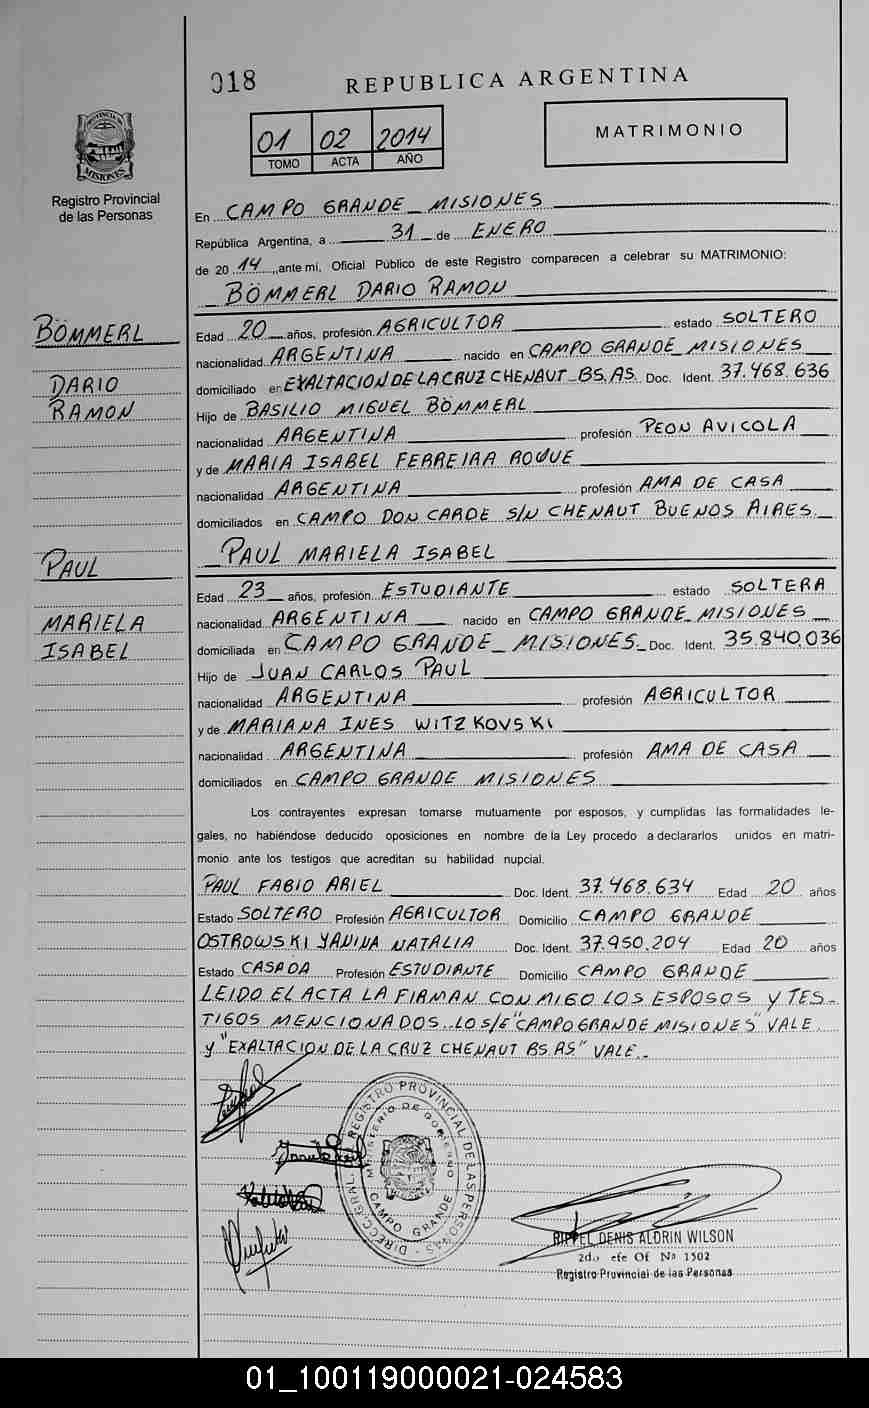 018
REPUBLICA ARGENTINA
01 02 2014
TOMO ACTA AÑO
MATRIMONIO
PROVINCIA DE
MISIONES
Registro Provincial
de las Personas
En CAMPO GRANDE - MISIONES
República Argentina, a 31 de ENERO
de 20 14 ,ante mí, Oficial Público de este Registro comparecen a celebrar su MATRIMONIO:
BÖMMERL DARIO RAMON
BÖMMERL
DARIO
RAMON
Edad 20 años, profesión AGRICULTOR estado SOLTERO
nacionalidad ARGENTINA nacido en CAMPO GRANDE - MISIONES
domiciliado en EXALTACION DE LA CRUZ CHENAUT - BS.AS. Doc. Ident. 37.468.636
Hijo de BASILIO MIGUEL BÖMMERL
nacionalidad ARGENTINA profesión PEON AVICOLA
y de MARIA ISABEL FERREIRA ROQUE
nacionalidad ARGENTINA profesión AMA DE CASA
domiciliados en CAMPO DON CARDE S/N CHENAUT BUENOS AIRES.
PAUL MARIELA ISABEL
PAUL
MARIELA
ISABEL
Edad 23 años, profesión ESTUDIANTE estado SOLTERA
nacionalidad ARGENTINA nacido en CAMPO GRANDE - MISIONES
domiciliada en CAMPO GRANDE - MISIONES - Doc. Ident. 35.840.036
Hijo de JUAN CARLOS PAUL
nacionalidad ARGENTINA profesión AGRICULTOR
y de MARIANA INES WITZKOVSKI
nacionalidad ARGENTINA profesión AMA DE CASA
domiciliados en CAMPO GRANDE MISIONES
Los contrayentes expresan tomarse mutuamente por esposos, y cumplidas las formalidades le-
gales, no habiéndose deducido oposiciones en nombre de la Ley procedo a declararlos unidos en matri-
monio ante los testigos que acreditan su habilidad nupcial.
PAUL FABIO ARIEL Doc. Ident. 37.468.634 Edad 20 años
Estado SOLTERO Profesión AGRICULTOR Domicilio CAMPO GRANDE
OSTROWSKI YANINA NATALIA Doc. Ident. 37.950.204 Edad 20 años
Estado CASADA Profesión ESTUDIANTE Domicilio CAMPO GRANDE
LEIDO EL ACTA LA FIRMAN CONMIGO LOS ESPOSOS Y TES-
TIGOS MENCIONADOS. LO S/E "CAMPO GRANDE MISIONES" VALE.
y "EXALTACION DE LA CRUZ CHENAUT BS.AS" VALE.-
DIRECC. GRAL. REGISTRO PROVINCIAL DE LAS PERSONAS
MINISTERIO DE GOBIERNO
CAMPO GRANDE
RIPPEL DENIS ALDRIN WILSON
2do efe Of Nº 1502
Registro Provincial de las Personas
01_100119000021-024583